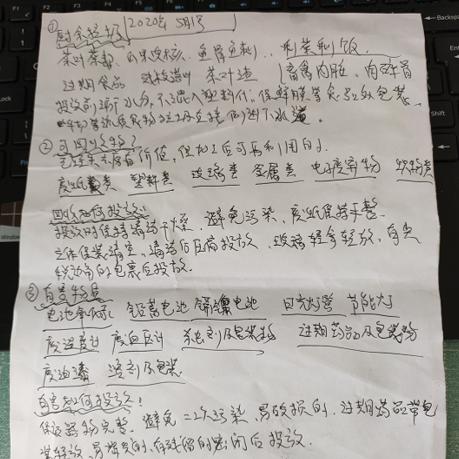 ① 厨余垃圾 2020年5月1号
菜叶菜根 水果皮核、鱼骨鱼刺、剩菜剩饭
过期食品 茶叶渣 畜禽内脏、肉碎骨
投放前沥干水分，不混入塑料
② 可回收物？
废纸类 塑料类 玻璃类 金属类 电子废弃物 织物类
回收如何投放？
投放时保持清洁干燥、避免污染、废纸保持平整
立体包装清空、清洁后压扁投放、玻璃轻拿轻放、有尖
锐边角的包裹后投放。
③ 有害物品
铅蓄电池 镍镉电池 日光灯管 节能灯
废温度计 废血压计 杀虫剂及包装物 过期药品及包装物
废油漆 溶剂及包装
有害如何投放？
保证器物完整、避免二次污染、易破损的、过期药品带包
装轻放、易挥发的、密闭后投放.